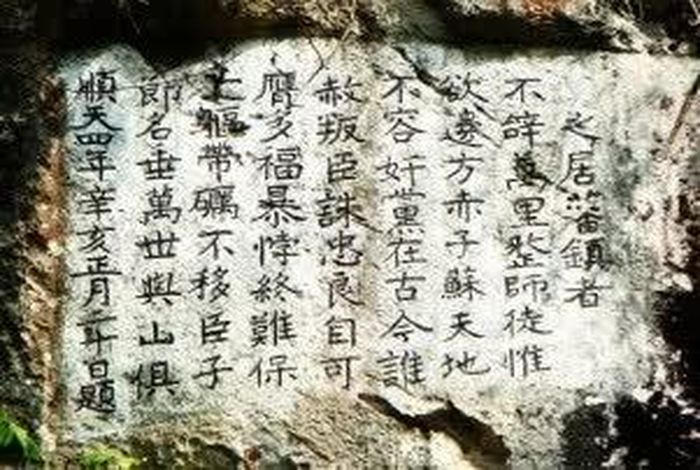 之居藩鎮者
不辝萬里整師徒惟
欲邊方赤子蘇天地
不容奸黨在古今誰
赦叛臣誅忠良自可
膺多福暴悖終難保
軀帶礪不移臣子
節名垂萬世與山俱
順天四年辛亥正月二十日題